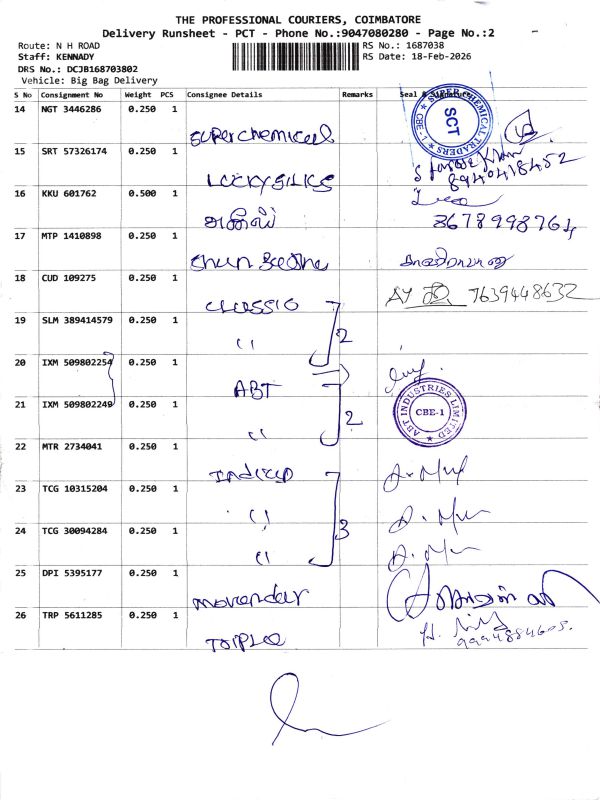 THE PROFESSIONAL COURIERS, COIMBATORE
Delivery Runsheet - PCT - Phone No.:9047080280 - Page No.:2
Route: N H ROAD
RS No.: 1687038
Staff: KENNADY
RS Date: 18-Feb-2026
DRS No.: DCJB168703802
Vehicle: Big Bag Delivery
S No Consignment No Weight PCS Consignee Details Remarks Seal &
14 NGT 3446286 0.250 1 Superchemical
SUPER CHEMICAL TRADERS CBE-1 SCT
15 SRT 57326174 0.250 1 LUCKYSILKS 8940418452
16 KKU 601762 0.500 1 3678998764
17 MTP 1410898 0.250 1
18 CUD 109275 0.250 1 CLASSIC 7639448632
19 SLM 389414579 0.250 1 " 2
20 IXM 509802254 0.250 1 ABT
21 IXM 509802249 0.250 1 " 2
ABT INDUSTRIES LIMITED CBE-1
22 MTR 2734041 0.250 1
23 TCG 10315204 0.250 1 " 3
24 TCG 30094284 0.250 1 "
25 DPI 5395177 0.250 1
26 TRP 5611285 0.250 1